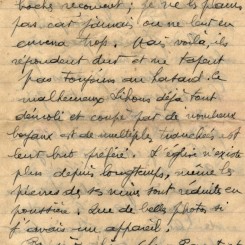 boche reçoivent ; je ne les plains
pas car jamais on ne leur en
enverra trop. Mais voilà, ils
répondent dur et ne tapent
pas toujours au hasard. Le
malheureux Lihons déjà tout
démoli et coupé par de nombreux
boyaux et de multiples tranchées est
leur but préféré. L'église n'existe
plus depuis longtemps, même les
pierres de ses murs sont réduites en
poussière. Que de belles photos si
j'avais un appareil.